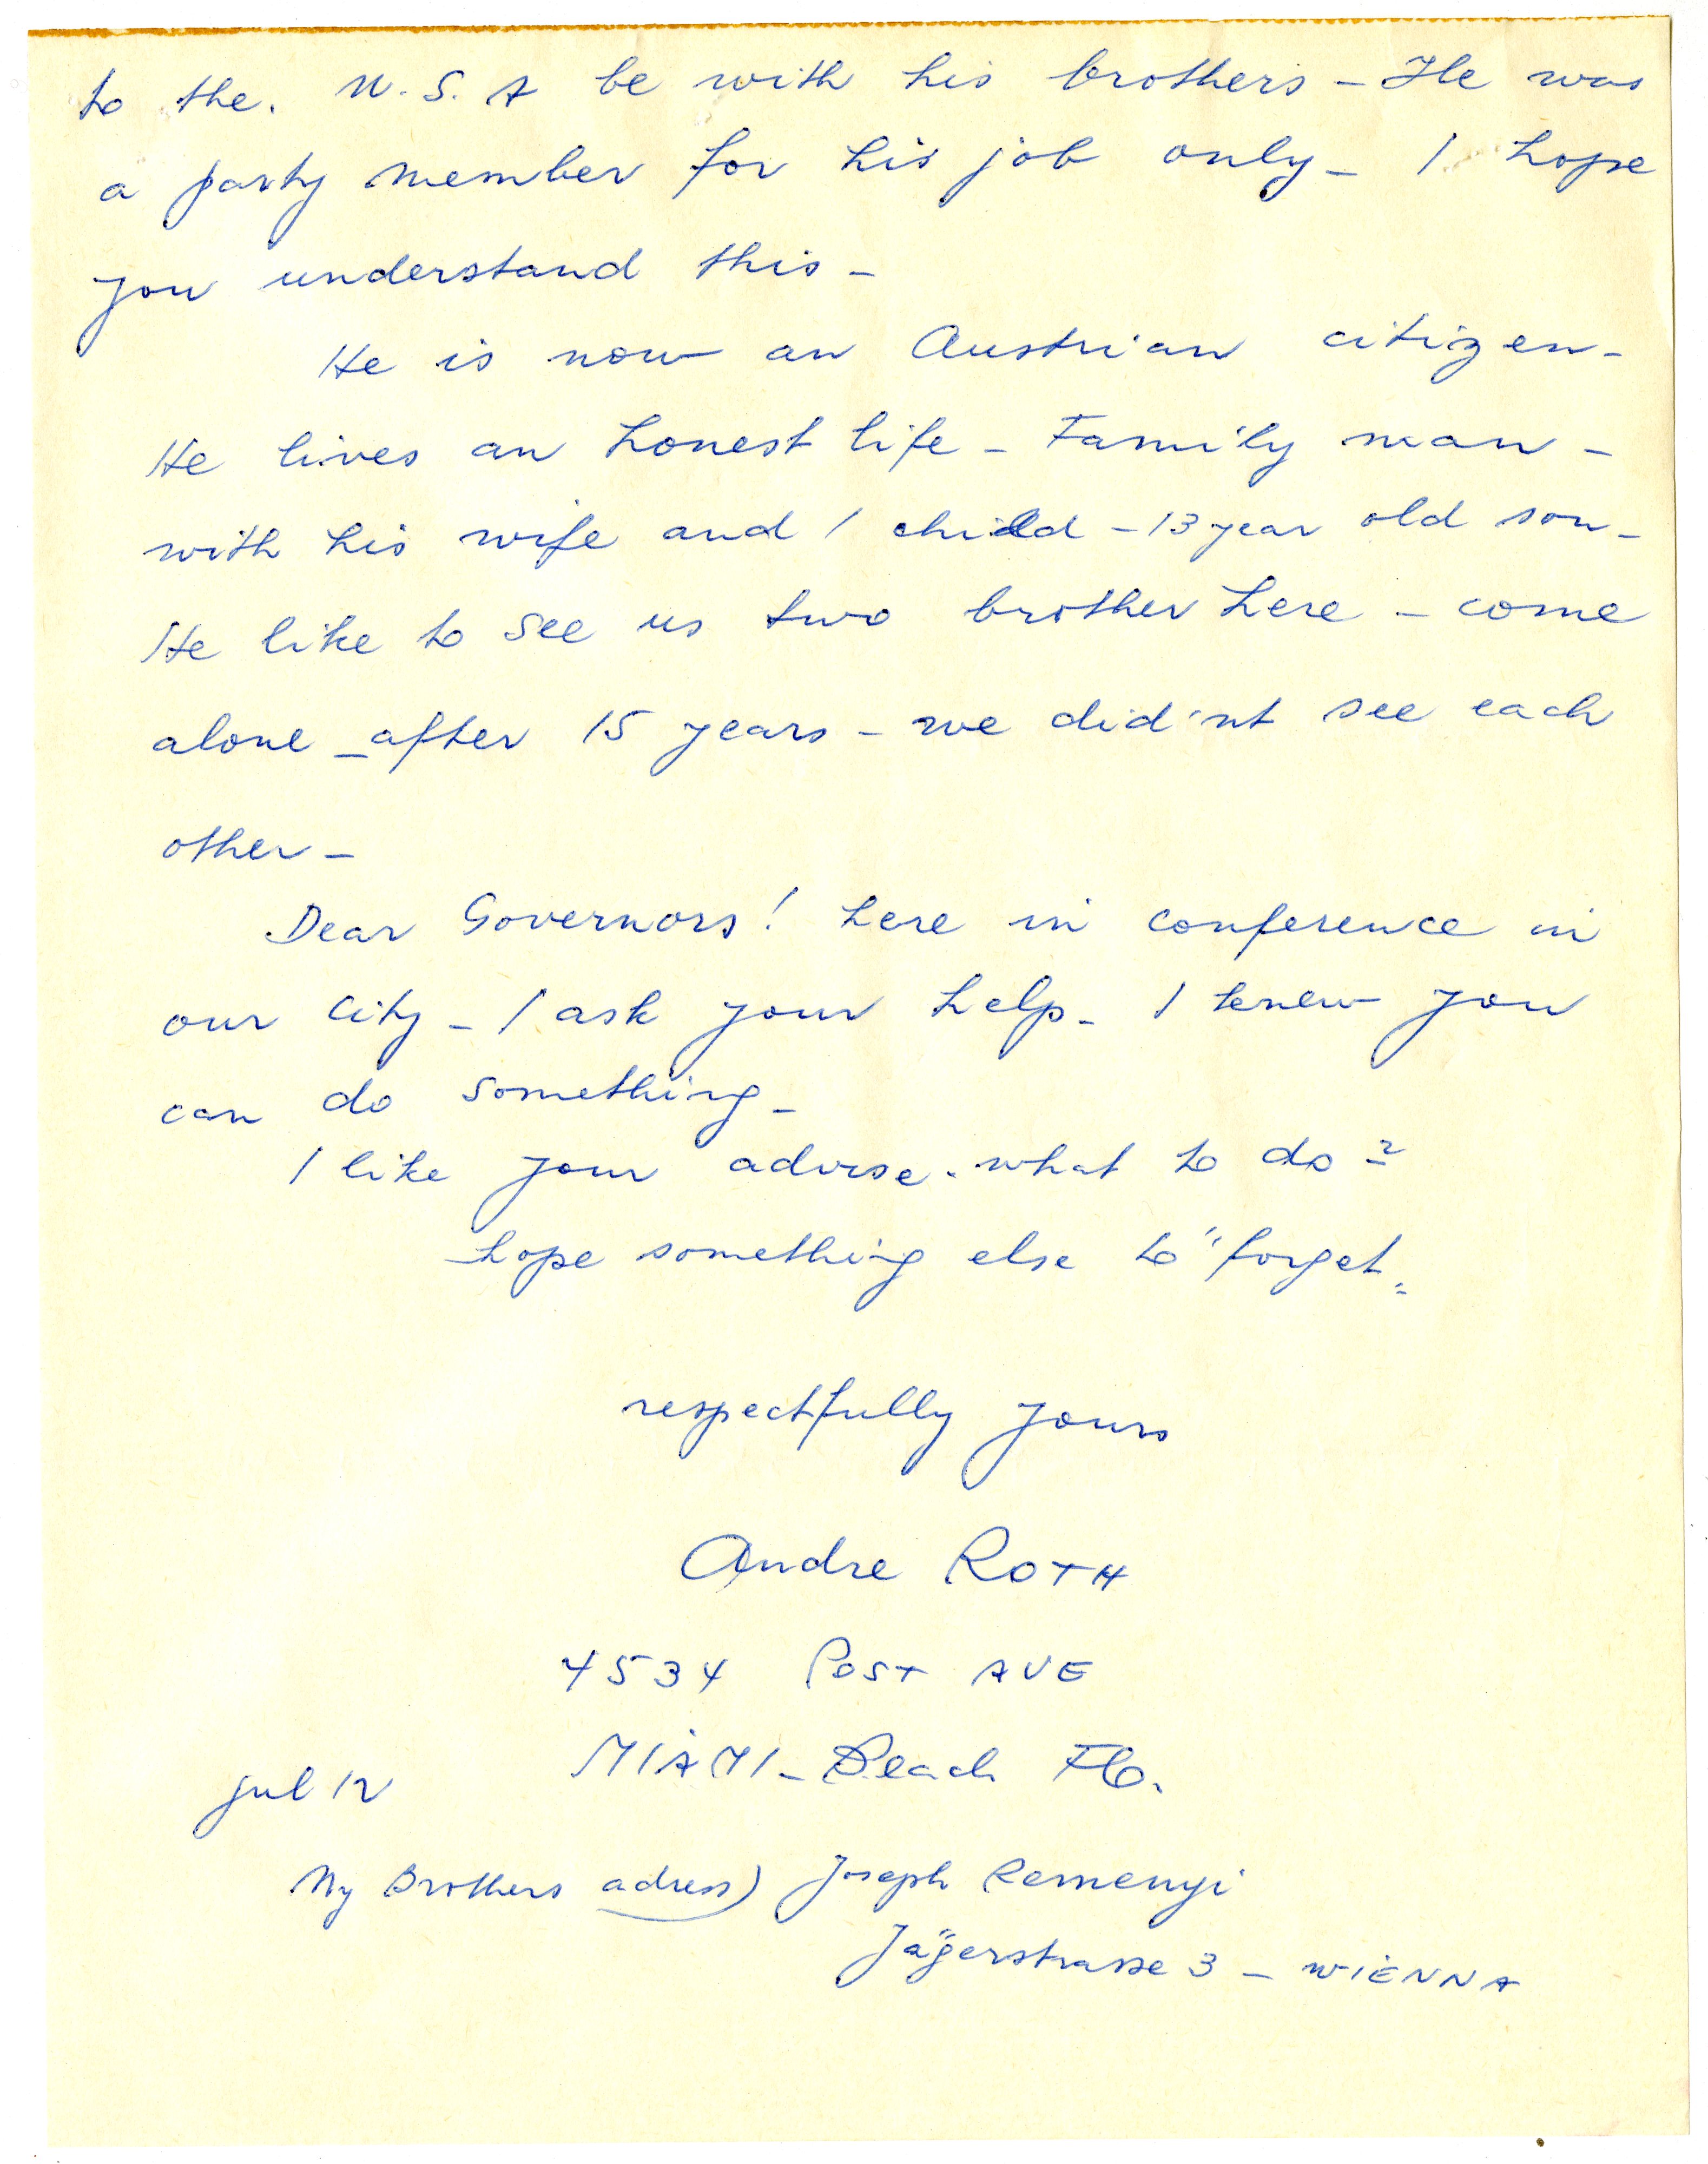 to the. U.S.A be with his brothers - He was
a party member for his job only - I hope
you understand this -
He is now an Austrian citizen -
He lives an honest life - Family man -
with his wife and 1 child - 13 year old son -
He like to see us two brother here - come
alone - after 15 years - we did'nt see each
other -
Dear Governors! here in conference in
our City - I ask your help - I knew you
can do something -
I like your advise. what to do?
hope something else to "forget"
respectfully yours
Andre ROTH
4534 POST AVE
MIAMI - Beach Fla.
jul 12
My Brothers adress) Joseph Remenyi
Jägerstrasse 3 - WIENNA